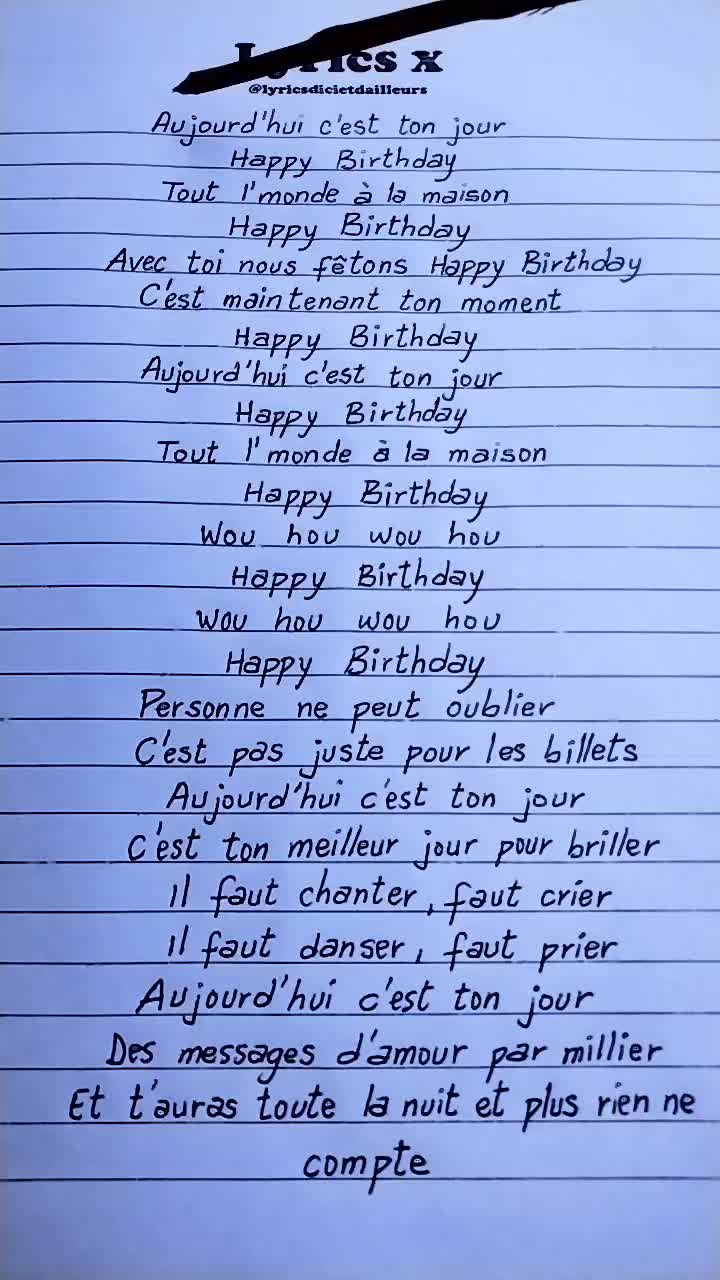 Lyrics x
@lyricsdicietdailleurs
Aujourd'hui c'est ton jour
Happy Birthday
Tout l'monde à la maison
Happy Birthday
Avec toi nous fêtons Happy Birthday
C'est maintenant ton moment
Happy Birthday
Aujourd'hui c'est ton jour
Happy Birthday
Tout l'monde à la maison
Happy Birthday
Wou hou wou hou
Happy Birthday
Wou hou wou hou
Happy Birthday
Personne ne peut oublier
C'est pas juste pour les billets
Aujourd'hui c'est ton jour
C'est ton meilleur jour pour briller
Il faut chanter, faut crier
Il faut danser, faut prier
Aujourd'hui c'est ton jour
Des messages d'amour par millier
Et t'auras toute la nuit et plus rien ne
compte